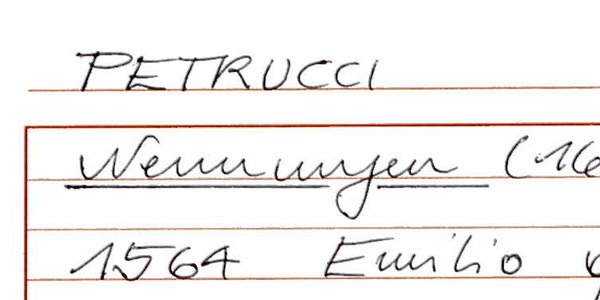 PETRUCCI
Nennungen (16
1564 Emilio